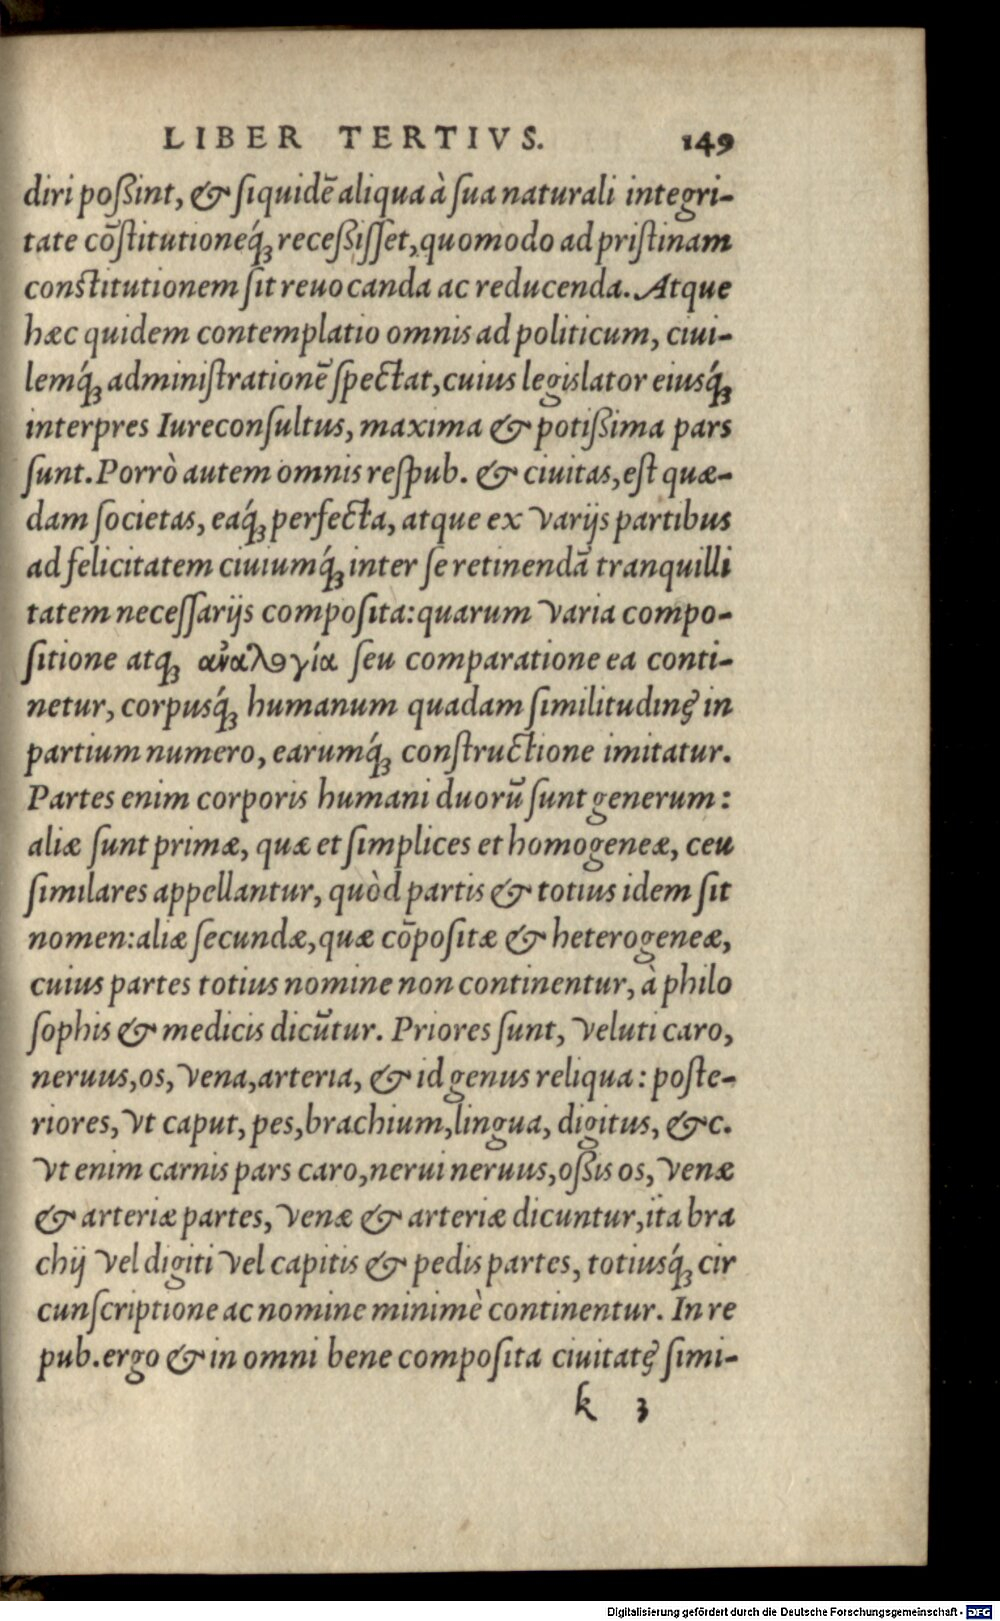 LIBER TERTIVS. 149
diri poßint, & ſiquidē aliqua à ſua naturali integri-
tate cōſtitutioneq́ꝫ receßiſſet, quomodo ad priſtinam
conſtitutionem ſit reuocanda ac reducenda. Atque
hæc quidem contemplatio omnis ad politicum, ciui-
lemq́ꝫ adminiſtrationē ſpectat, cuius legislator eiusq́ꝫ
interpres Iureconſultus, maxima & potißima pars
ſunt. Porrò autem omnis reſpub. & ciuitas, eſt quæ-
dam ſocietas, eaq́ꝫ perfecta, atque ex varijs partibus
ad felicitatem ciuiumq́ꝫ inter ſe retinendā tranquilli
tatem neceſſarijs compoſita: quarum varia compo-
ſitione atqꝫ ἀναλογία ſeu comparatione ea conti-
netur, corpusq́ꝫ humanum quadam ſimilitudinę in
partium numero, earumq́ꝫ conſtructione imitatur.
Partes enim corporis humani duorū ſunt generum:
aliæ ſunt primæ, quæ et ſimplices et homogeneæ, ceu
ſimilares appellantur, quòd partis & totius idem ſit
nomen: aliæ ſecundæ, quæ cōpoſitæ & heterogeneæ,
cuius partes totius nomine non continentur, à philo
ſophis & medicis dicūtur. Priores ſunt, veluti caro,
neruus, os, vena, arteria, & id genus reliqua: poſte-
riores, vt caput, pes, brachium, lingua, digitus, &c.
vt enim carnis pars caro, nerui neruus, oßis os, venæ
& arteriæ partes, venæ & arteriæ dicuntur, ita bra
chij vel digiti vel capitis & pedis partes, totiusq́ꝫ cir
cunſcriptione ac nomine minimè continentur. In re
pub. ergo & in omni bene compoſita ciuitatę ſimi-
k 3
Digitalisierung gefördert durch die Deutsche Forschungsgemeinschaft - DFG